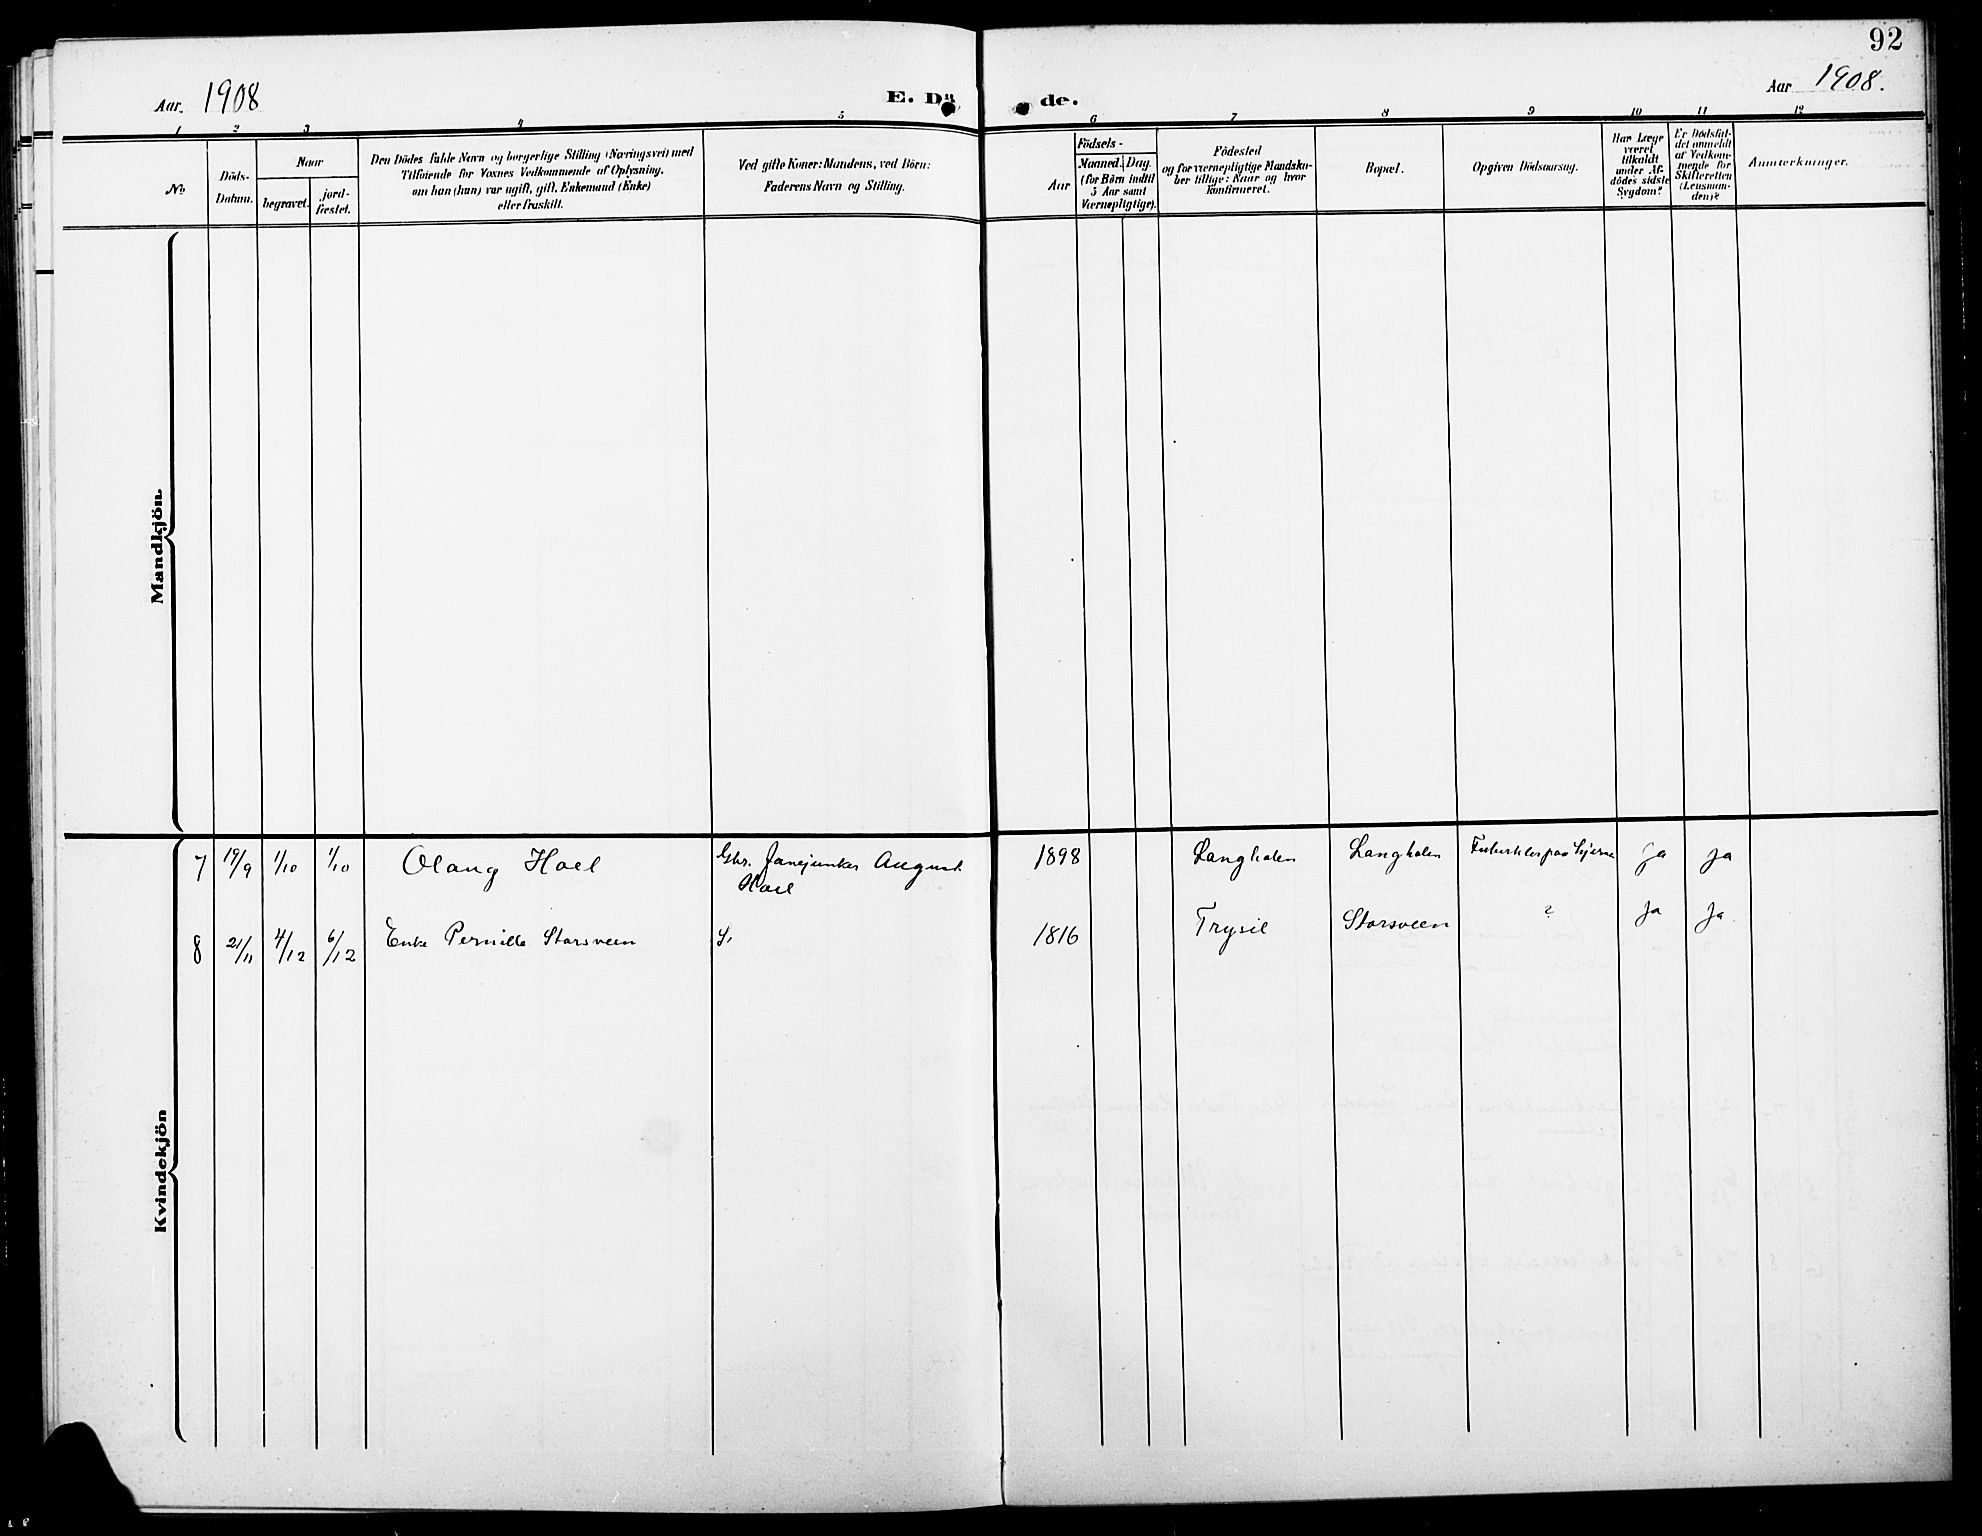 92
Aar. 1908
E. Dö de.
Aar 1908.
1 2 3 4 5 6 7 8 9 10 11 12
No
Döds-
Datum.
Naar
begravet.
jord-
fæstet.
Den Dödes fulde Navn og borgerlige Stilling (Næringsvei) med
Tilföiende for Voxnes Vedkommende af Oplysning,
om han (hun) var ugift, gift, Enkemand (Enke)
eller fraskilt.
Ved gifte Koner: Mandens, ved Börn:
Faderens Navn og Stilling.
Födsels-
Aar
Maaned.
Dag.
(for Börn indtil
5 Aar samt
Værnepligtige).
Födested
og for værnepligtige Mandska-
ber tillige: Naar og hvor
konfirmeret.
Bopæl.
Opgiven Dödsaarsag.
Har Læge
været
tilkaldt
under Af-
dödes sidste
Sygdom?
Er Dödsfal-
det anmeldt
af Vedkom-
mende for
Skifteretten
(Lensman-
den)?
Anmærkninger.
Mandkjön.
Kvindekjön
7 19/9 1/10 1/10 Olaug Hoel Gbr. August 1898 Langholen Langholen Ja Ja
Hoel
8 21/11 4/12 6/12 Enke Pernille Storsveen 1816 Trysil Storsveen ? Ja Ja